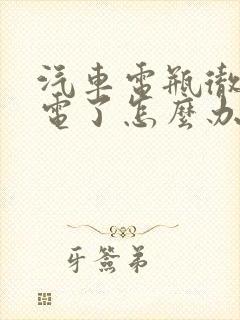 汽車電瓶徹
電了怎麼办
牙簽弟